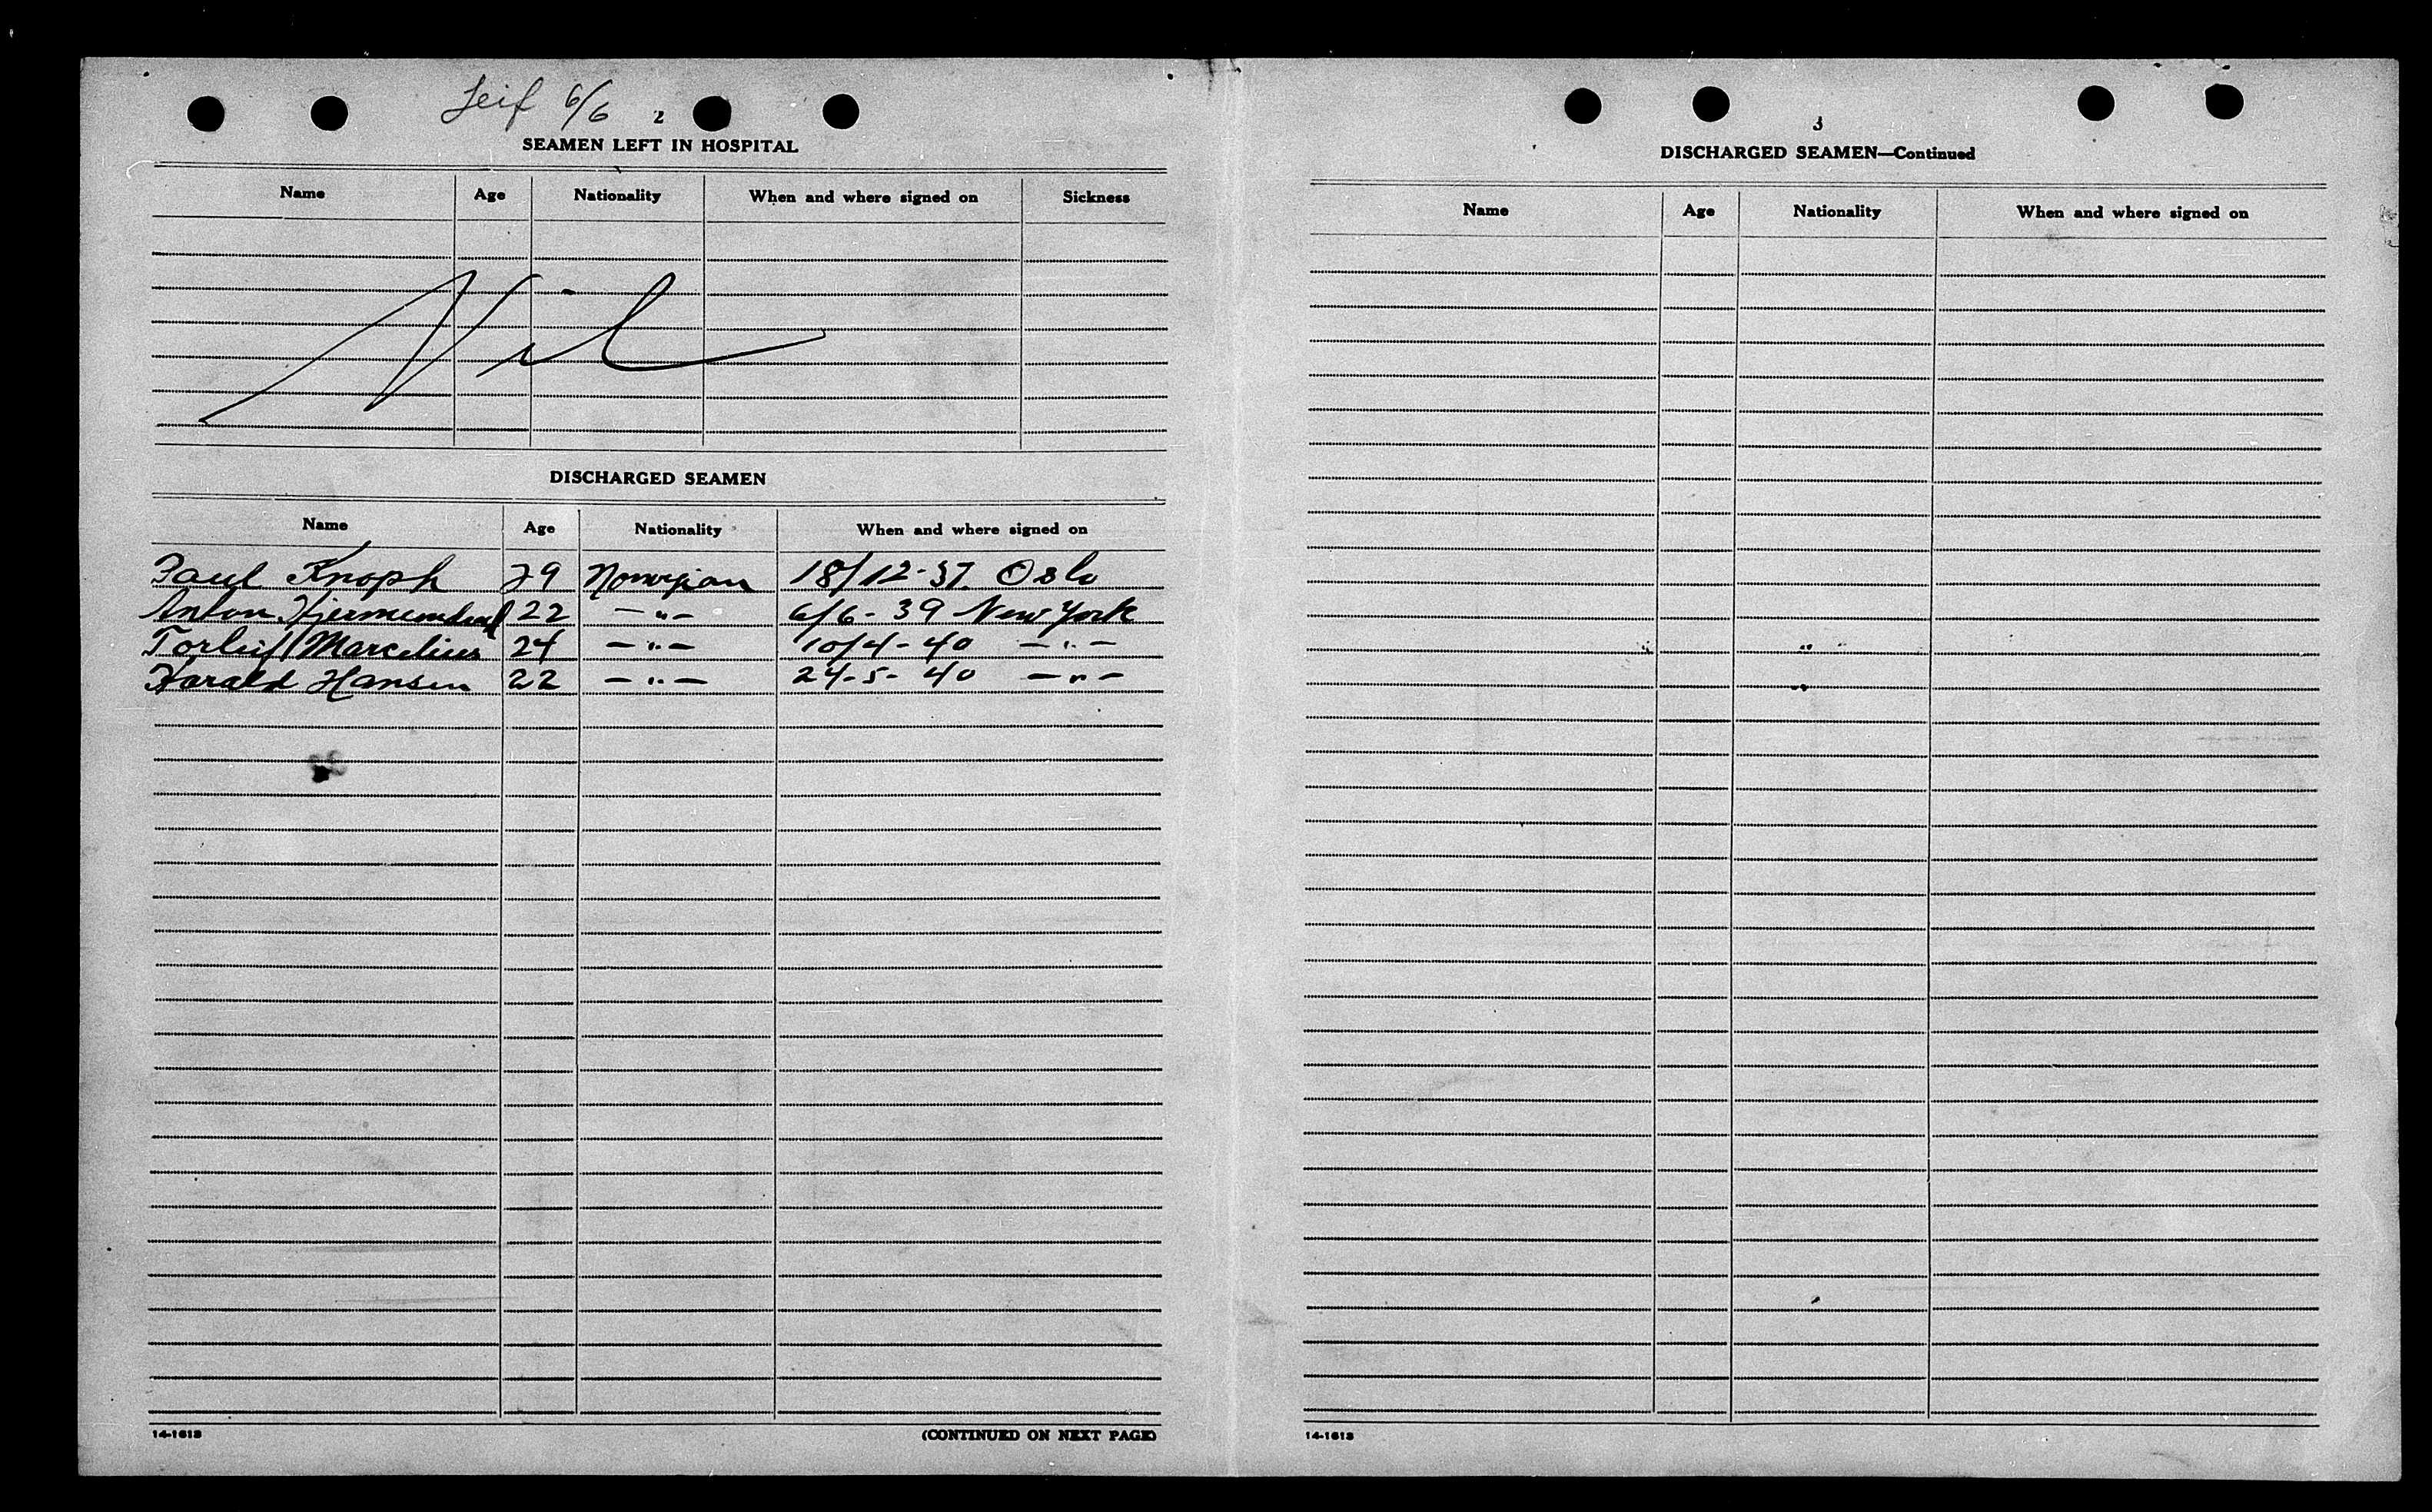 Leif 6/6
2
SEAMEN LEFT IN HOSPITAL
Name Age Nationality When and where signed on Sickness
Nil
DISCHARGED SEAMEN
Name Age Nationality When and where signed on
Paul Knoph 29 Norwegian 18/12-37 Oslo
Anton 22 —"— 6/6-39 New York
Torleif Marcelius 24 —"— 10/4-40 —"—
Harald Hansen 22 —"— 24-5-40 —"—
14-1613 (CONTINUED ON NEXT PAGE)
3
DISCHARGED SEAMEN—Continued
Name Age Nationality When and where signed on
14-1613